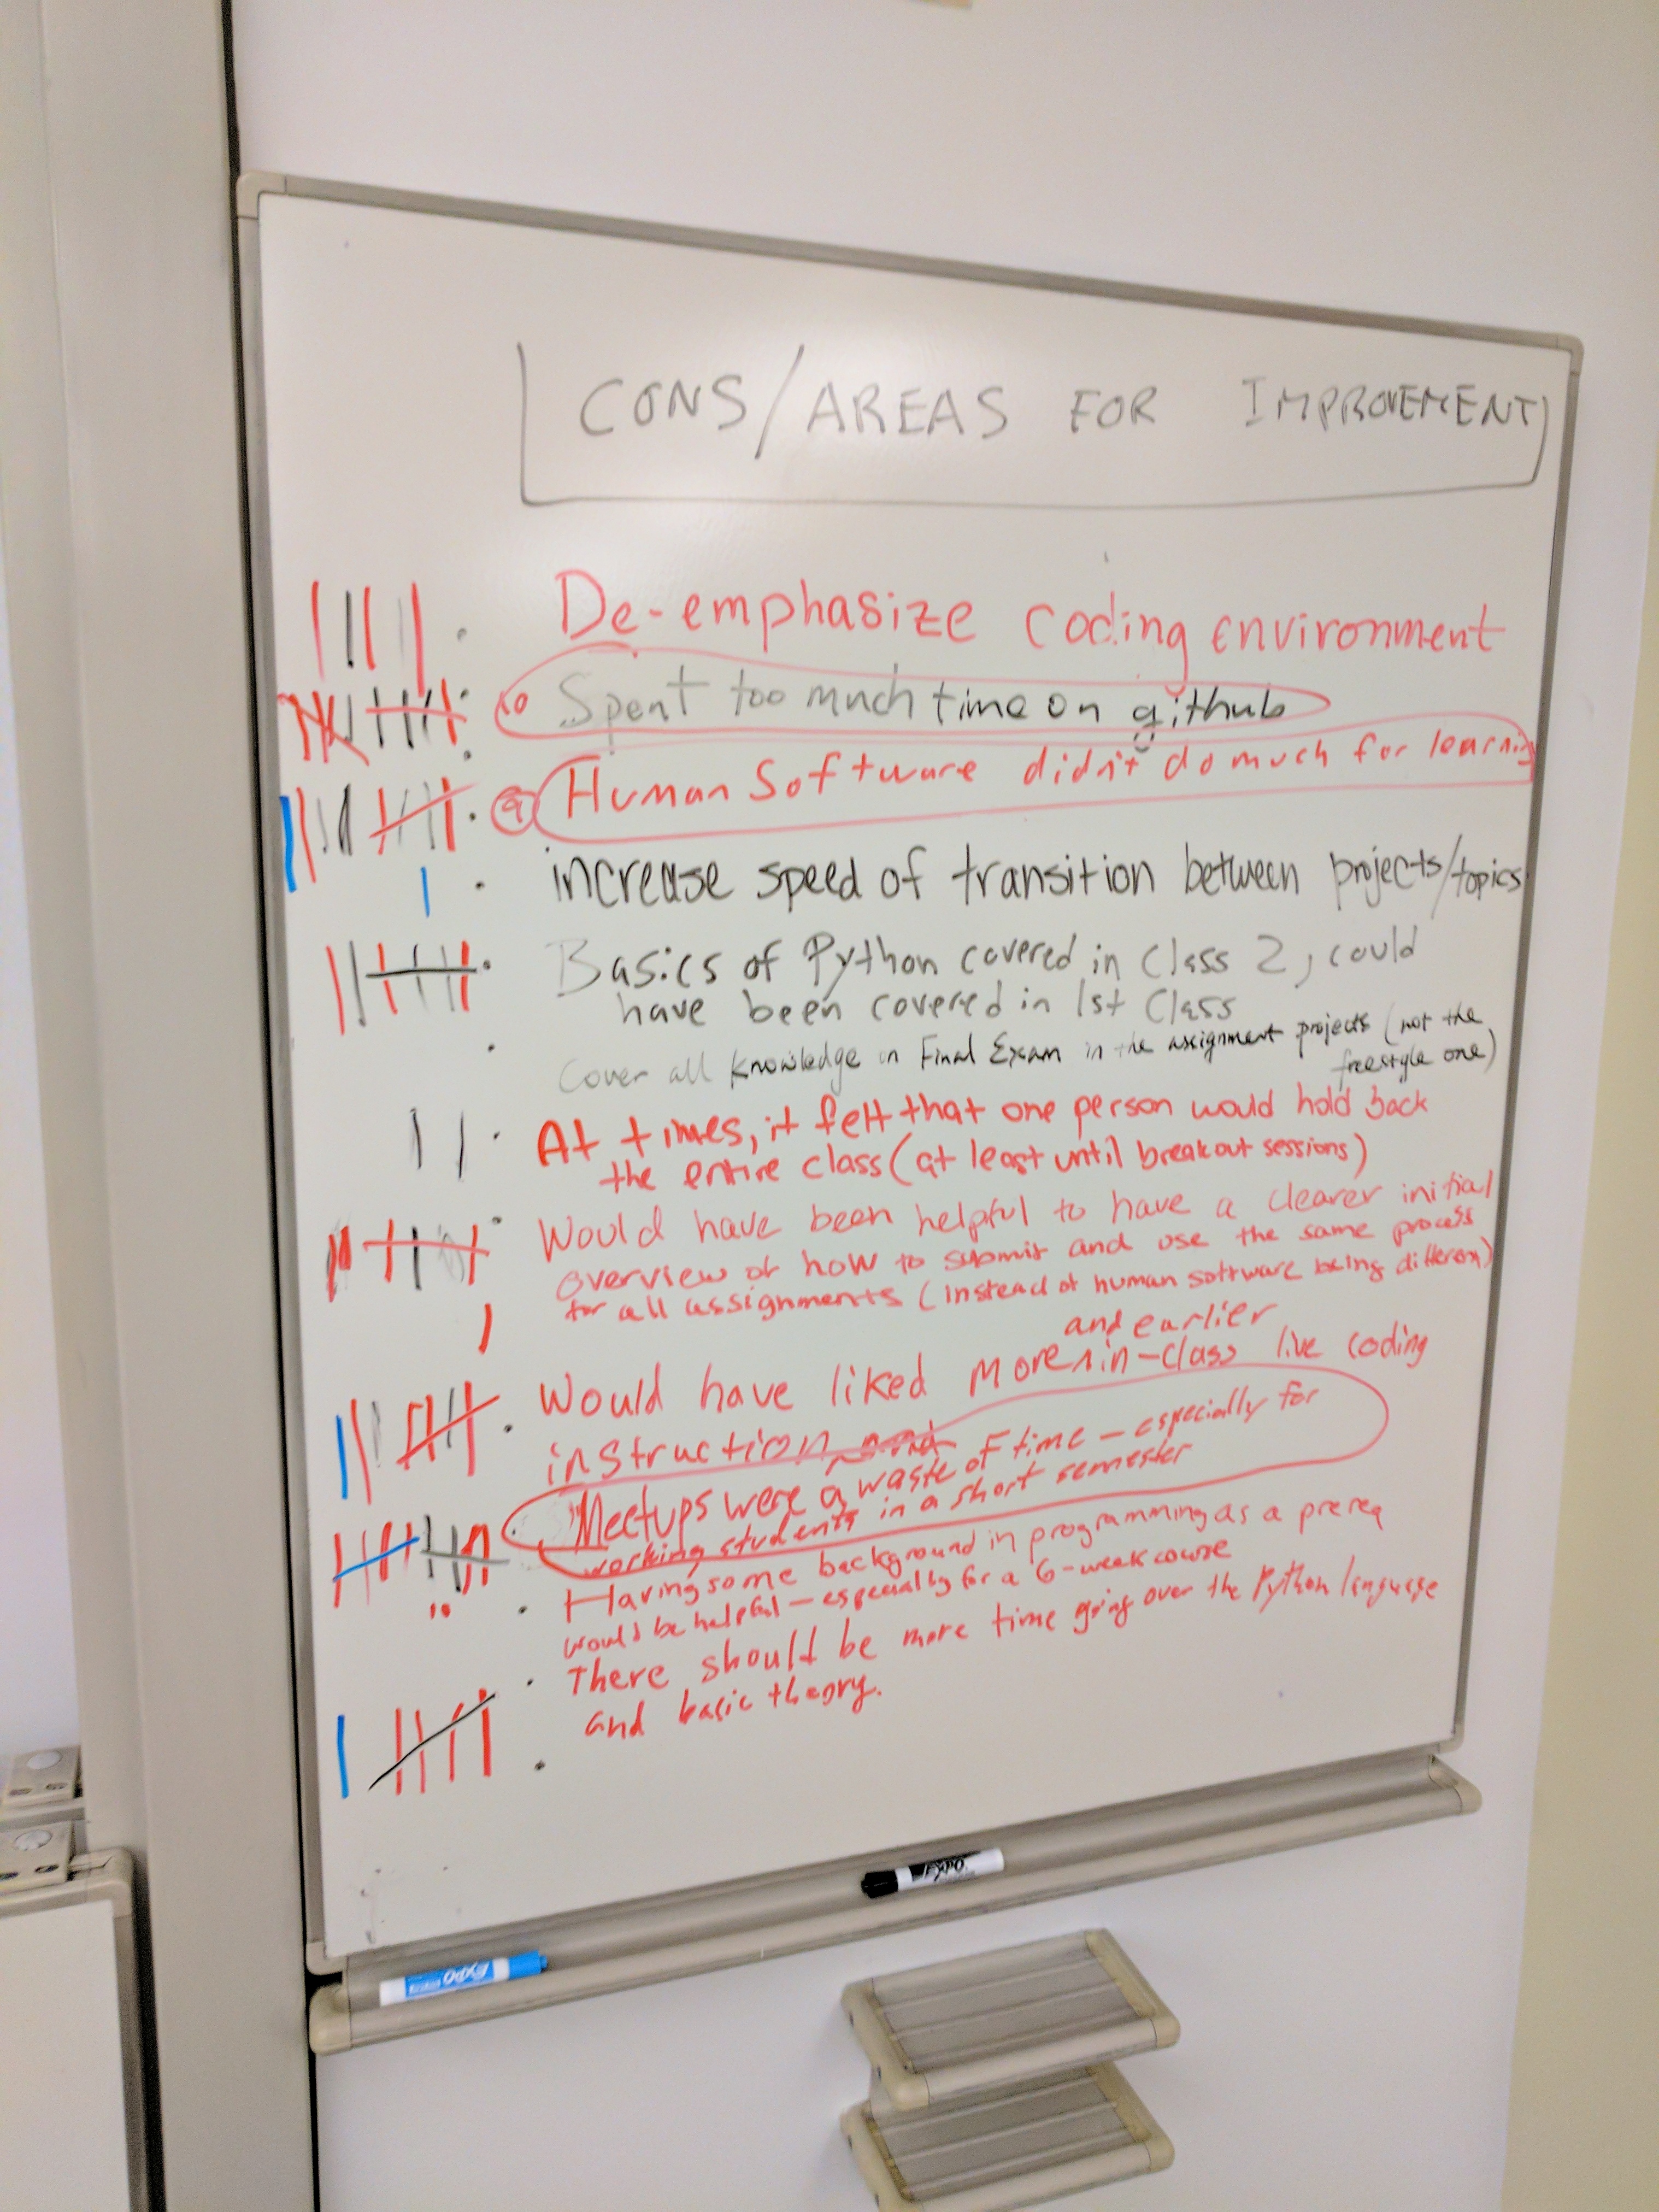 CONS/AREAS FOR IMPROVEMENT
De-emphasize coding environment
10 Spent too much time on github
9 Human Software didn't do much for learning
increase speed of transition between projects/topics
Basics of Python covered in Class 2, could
have been covered in 1st Class
Cover all knowledge in Final Exam in the assignment projects (not the
freestyle one)
At times, it felt that one person would hold back
the entire class (at least until breakout sessions)
Would have been helpful to have a clearer initial
overview of how to submit and use the same process
for all assignments (instead of human software being different)
and earlier
Would have liked more in-class live coding
instruction
Meetups were a waste of time - especially for
working students in a short semester
Having some background in programming as a prereq
would be helpful - especially for a 6-week course
There should be more time going over the Python language
and basic theory.
EXPO
EXPO